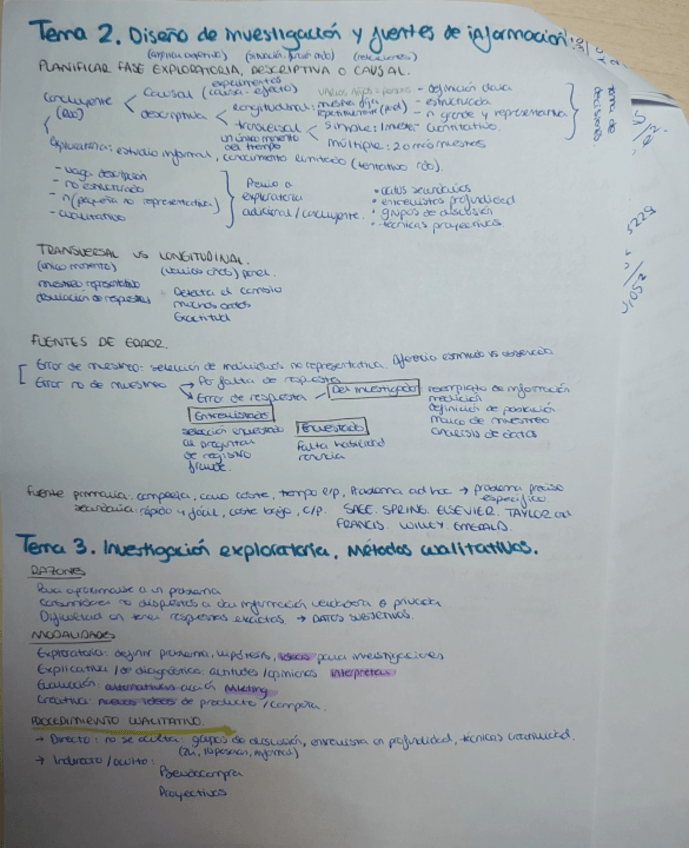 Tema 2. Diseño de investigación y fuentes de información
PLANIFICAR FASE EXPLORATORIA, DESCRIPTIVA O CAUSAL.
concluyente
causal (causa-efecto)
experimentos
descriptiva
longitudinal: muestra fija
- definición clara
- estructurada
- n grande y representativa
transversal
un único momento del tiempo
simple: 1 muestra
- cuantitativo.
múltiple: 2 o más muestras
toma de decisiones
exploratoria: estudio informal, conocimiento limitado (tentativo rdo).
- vaga descripción
- no estructurado
- n (pequeña no representativa)
- cualitativo
Previo a
exploratoria
adicional / concluyente.
• datos secundarios
• entrevistas profundidad
• grupos de discusión
• técnicas proyectivas.
TRANSVERSAL VS LONGITUDINAL.
(único momento)
panel.
muestreo representativo
Detecta el cambio
muchos datos
Exactitud
FUENTES DE ERROR.
Error de muestreo: selección de individuos no representativa. Diferencia estimado vs observado
Error no de muestreo → Por falta de respuesta
Error de respuesta
Del investigador
reemplazo de información
medición
definición de población
marco de muestreo
análisis de datos
Entrevistador
selección encuestado
al preguntar
de registro
fraude.
Encuestado
falta habilidad
renuncia
Fuente primaria: compleja, caro coste, tiempo e/p, Problema ad hoc → problema preciso específico.
secundaria: rápido y fácil, coste bajo, c/p. SAGE. SPRING. ELSEVIER. TAYLOR
FRANCIS. WILEY. EMERALD.
Tema 3. Investigación exploratoria. Métodos cualitativos.
RAZONES
Para aproximarse a un problema
Consumidores no dispuestos a dar información verdadera o privada
Dificultad en tener respuestas exactas → DATOS SUBJETIVOS.
MODALIDADES
Exploratoria: definir problema, hipótesis, ideas para investigaciones
Explicativa / de diagnóstico: actitudes / opiniones interpretar
Evaluación: alternativas acción Mketing
Creativa: nuevas ideas de producto / compañía.
PROCEDIMIENTO CUALITATIVO.
→ Directo: no se oculta: grupos de discusión, entrevista en profundidad, técnicas creatividad.
→ Indirecto / oculto:
Pseudocompra
Proyectivas